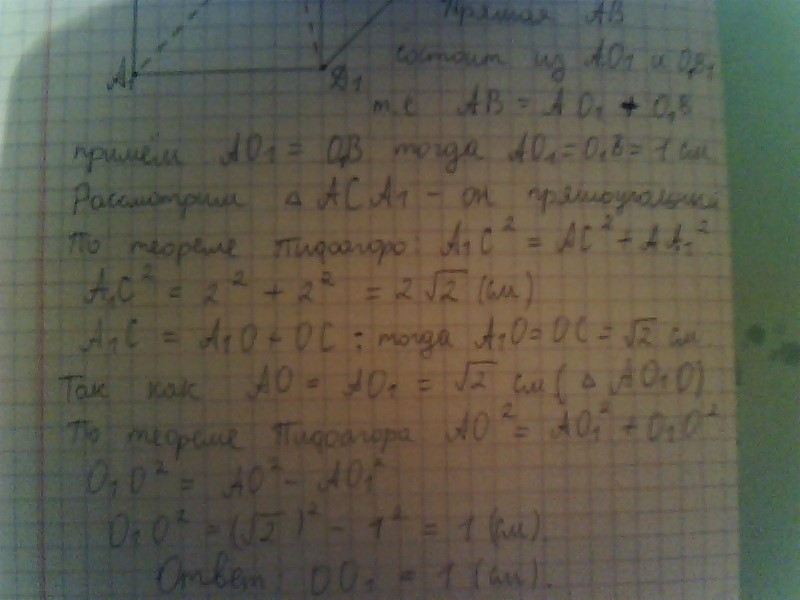 Прямая AB
A1 D1 состоит из AO1 и O1B1
т.е AB = AO1 + O1B
примем AO1 = O1B тогда AO1 = O1B = 1 см
Рассмотрим △ ACA1 - он прямоугольный
По теореме Пифагора: A1C² = AC² + AA1²
A1C² = 2² + 2² = 2√2 (см)
A1C = A1O + OC ; тогда A1O = OC = √2 см
Так как AO = AO1 = √2 см (△ AO1O)
По теореме Пифагора AO² = AO1² + O1O²
O1O² = AO² - AO1²
O1O² = (√2)² - 1² = 1 (см).
Ответ: OO1 = 1 (см).